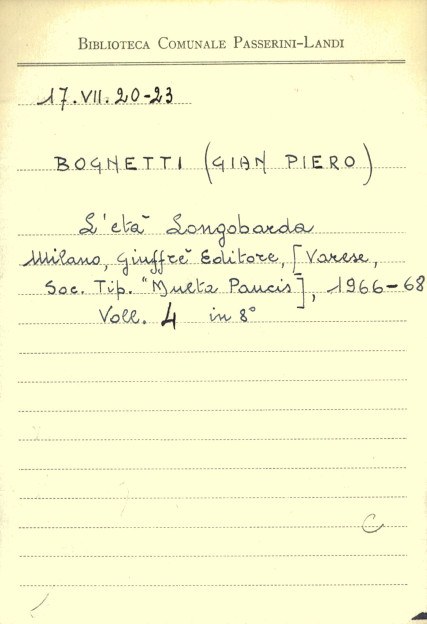 BIBLIOTECA COMUNALE PASSERINI-LANDI
17.VII.20-23
BOGNETTI (GIAN PIERO)
L'età Longobarda
Milano, Giuffrè Editore, [Varese,
Soc. Tip. "Multa Paucis], 1966-68
Voll. 4 in 8°
C